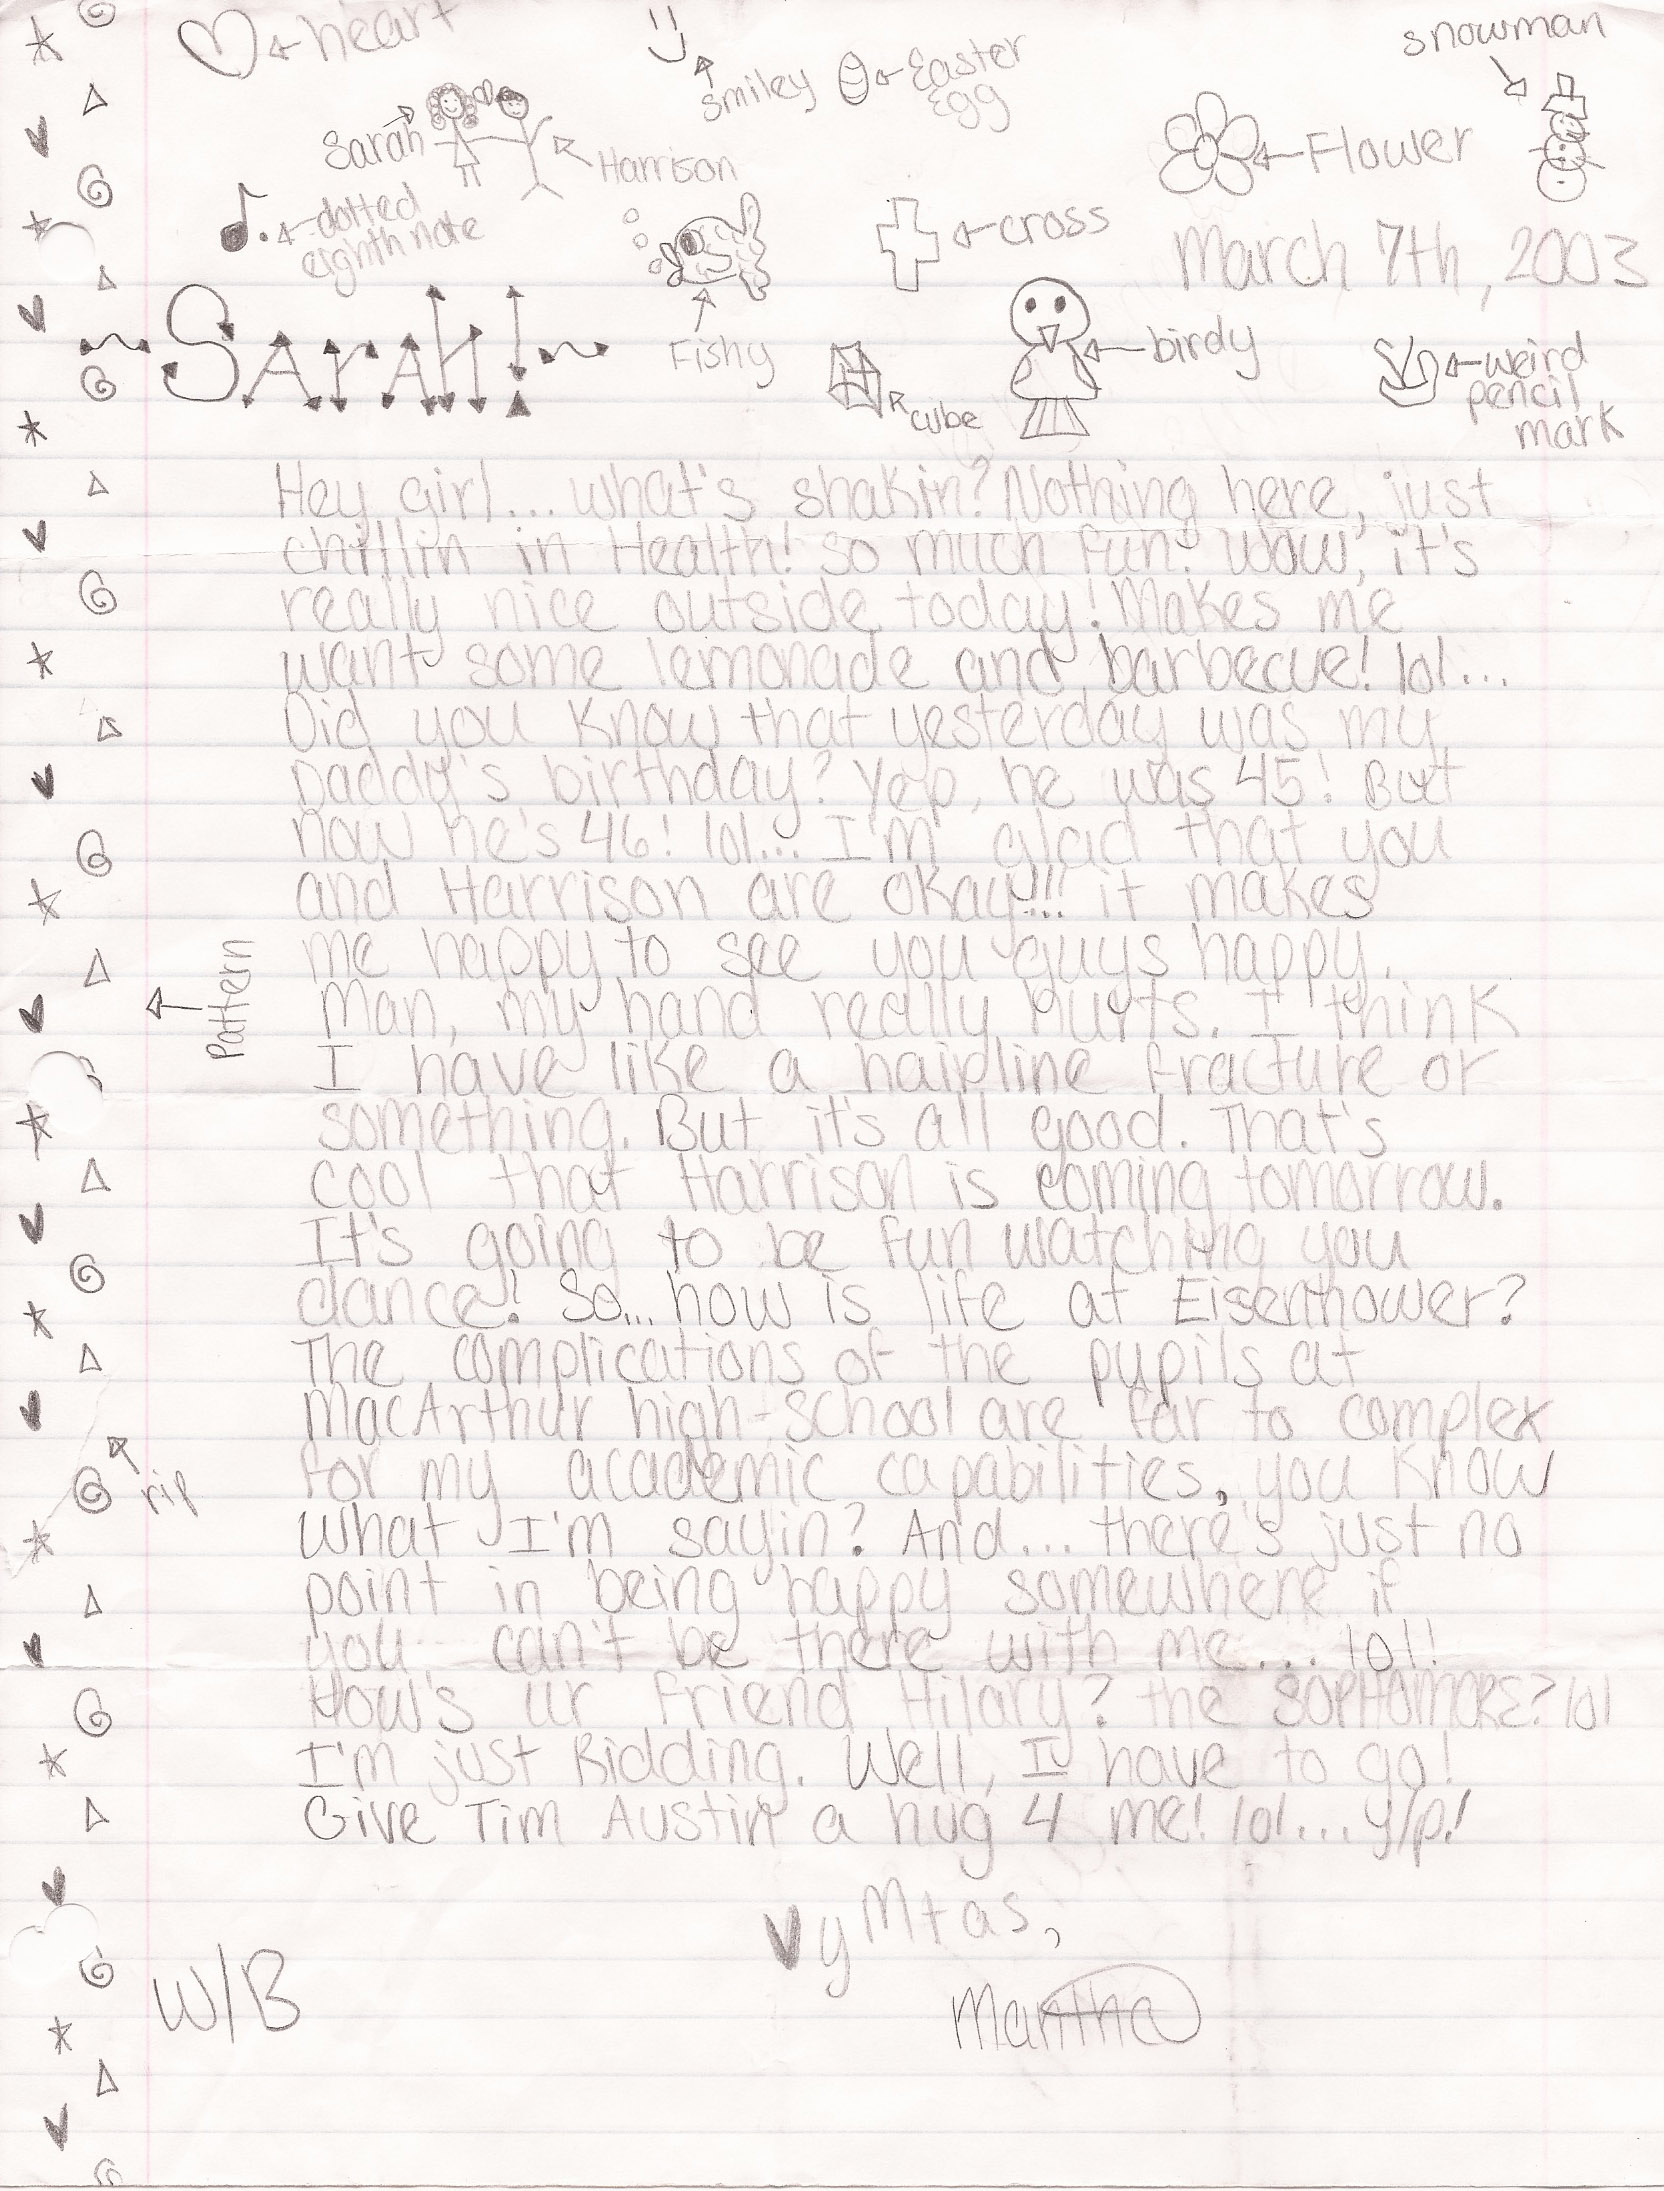 heart
smiley
Easter
Egg
snowman
Sarah
Harrison
Flower
dotted
eighth note
cross
March 7th, 2003
~Sarah!~
Fishy
cube
birdy
weird
pencil
mark
Hey girl... what's shakin? Nothing here, just
chillin in Health! So much fun. Wow, it's
really nice outside today! Makes me
want some lemonade and barbecue! lol...
Did you know that yesterday was my
Daddy's birthday? Yep, he was 45! But
now he's 46! lol... I'm glad that you
and Harrison are okay!!! it makes
me happy to see you guys happy.
Man, my hand really hurts. I think
I have like a hairline fracture or
something. But it's all good. That's
cool that Harrison is coming tomorrow.
It's going to be fun watching you
dance! So... how is life at Eisenhower?
The complications of the pupils at
MacArthur high-school are far to complex
for my academic capabilities, you know
what I'm sayin? And... there's just no
point in being happy somewhere if
you can't be there with me... lol!
How's ur friend Hilary? the SOPHOMORE? lol
I'm just Kidding. Well, I have to go!
Give Tim Austin a hug 4 me! lol... y/p!
Pattern
rip
♥ y Mtas,
Mantha
W/B